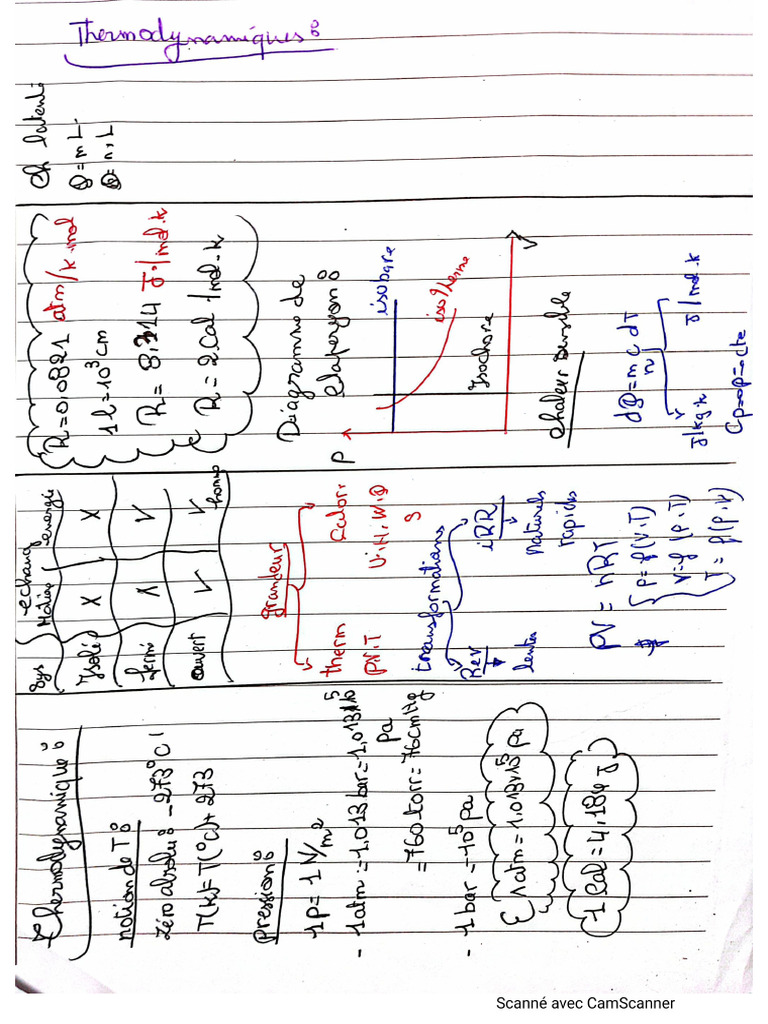 Thermodynamiques :
Thermodynamique :
notion de T° :
Zero absolu : -273°C
T(K) = T(°C) + 273
Pression :
1P = 1 N/m²
- 1atm = 1,013 bar = 1,013 x 10⁵ pa
= 760 torr = 76 cmHg
- 1 bar = 10⁵ pa
1 atm = 1,013 x 10⁵ pa
1 Cal = 4,184 J
sys
echang
Matière
energie
Isolé X X
fermé X V
ouvert V V
grandeur
therm
P,V,T
calori
U, H, W, Q
S
transformations
Rev
lentes
iRR
naturels
rapides
PV = nRT
P = f(V,T)
V = f(P,T)
T = f(P,V)
R = 0,0821 atm/K.mol
1l = 10³ cm
R = 8,314 J/mol.K
R = 2 Cal/mol.K
Diagramme de
Claperyon :
P
isobare
isotherme
Isochore
V
chaleur sensible
dQ = m C dT
n
J/kg.K
J/mol.K
Cp => P = cte
Ch latent :
Q = m L
Q = n.L
Scanné avec CamScanner